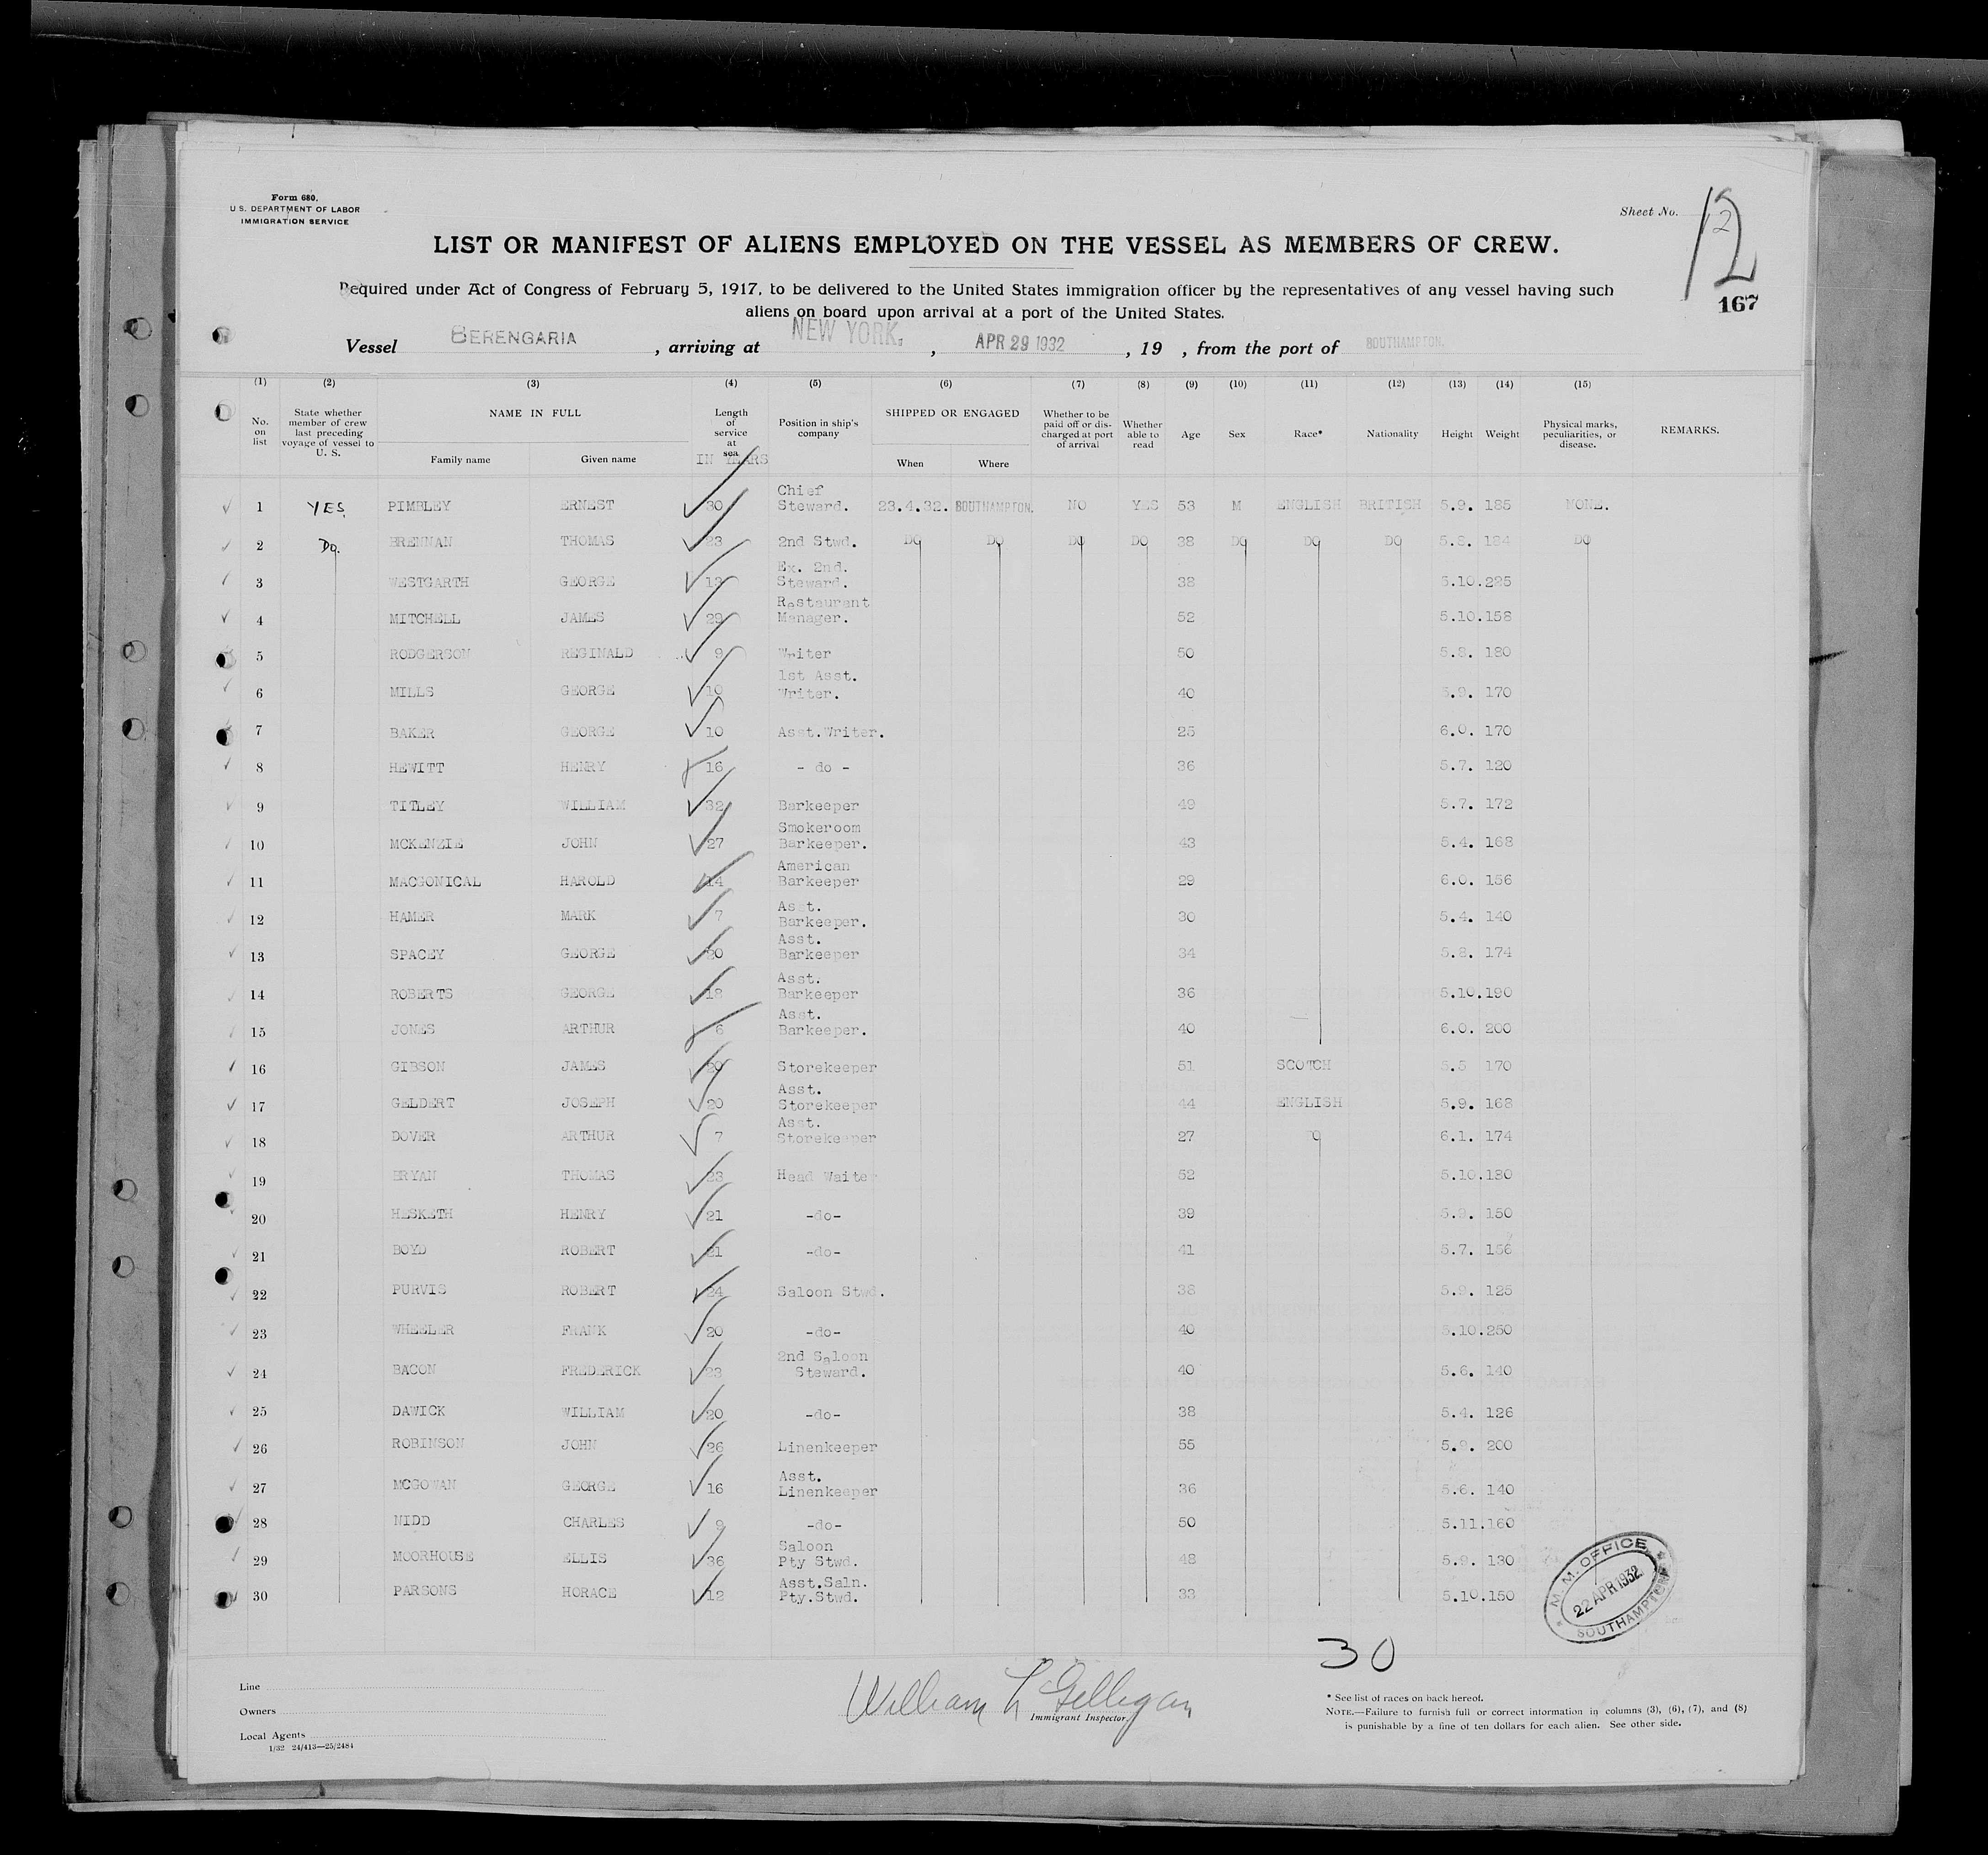 Form 680.
U.S. DEPARTMENT OF LABOR
IMMIGRATION SERVICE
Sheet No. 12
12
167
LIST OR MANIFEST OF ALIENS EMPLOYED ON THE VESSEL AS MEMBERS OF CREW.
Required under Act of Congress of February 5, 1917, to be delivered to the United States immigration officer by the representatives of any vessel having such
aliens on board upon arrival at a port of the United States.
Vessel BERENGARIA, arriving at NEW YORK, APR 29 1932, 19 , from the port of SOUTHAMPTON.
(1) (2) (3) (4) (5) (6) (7) (8) (9) (10) (11) (12) (13) (14) (15)
No. on list State whether member of crew last preceding voyage of vessel to U. S. NAME IN FULL Family name Given name Length of service at sea IN YEARS Position in ship's company SHIPPED OR ENGAGED When Where Whether to be paid off or discharged at port of arrival Whether able to read Age Sex Race* Nationality Height Weight Physical marks, peculiarities, or disease. REMARKS.
1 YES PIMBLEY ERNEST 30 Chief Steward. 23.4.32. SOUTHAMPTON. NO YES 53 M ENGLISH BRITISH 5.9. 185 NONE.
2 Do. BRENNAN THOMAS 23 2nd Stwd. DO DO DO DO 38 DO DO DO 5.8. 184 DO
3 WESTGARTH GEORGE 13 Ex. 2nd. Steward. 38 5.10. 225
4 MITCHELL JAMES 29 Restaurant Manager. 52 5.10. 158
5 RODGERSON REGINALD 9 Writer 50 5.8. 180
6 MILLS GEORGE 10 1st Asst. Writer. 40 5.9. 170
7 BAKER GEORGE 10 Asst.Writer. 25 6.0. 170
8 HEWITT HENRY 16 - do - 36 5.7. 120
9 TITLEY WILLIAM 32 Barkeeper 49 5.7. 172
10 MCKENZIE JOHN 27 Smokeroom Barkeeper. 43 5.4. 168
11 MACGONICAL HAROLD 14 American Barkeeper 29 6.0. 156
12 HAMER MARK 7 Asst. Barkeeper. 30 5.4. 140
13 SPACEY GEORGE 20 Asst. Barkeeper 34 5.8. 174
14 ROBERTS GEORGE 18 Asst. Barkeeper 36 5.10. 190
15 JONES ARTHUR 6 Asst. Barkeeper. 40 6.0. 200
16 GIBSON JAMES 20 Storekeeper 51 SCOTCH 5.5 170
17 GELDERT JOSEPH 20 Asst. Storekeeper 44 ENGLISH 5.9. 168
18 DOVER ARTHUR 7 Asst. Storekeeper 27 DO 6.1. 174
19 BRYAN THOMAS 23 Head Waiter 52 5.10. 180
20 HESKETH HENRY 21 -do- 39 5.9. 150
21 BOYD ROBERT 21 -do- 41 5.7. 156
22 PURVIS ROBERT 24 Saloon Stwd. 38 5.9. 125
23 WHEELER FRANK 20 -do- 40 5.10. 250
24 BACON FREDERICK 23 2nd Saloon Steward. 40 5.6. 140
25 DAWICK WILLIAM 20 -do- 38 5.4. 126
26 ROBINSON JOHN 26 Linenkeeper 55 5.9. 200
27 MCGOWAN GEORGE 16 Asst. Linenkeeper 36 5.6. 140
28 NIDD CHARLES 9 -do- 50 5.11. 160
29 MOORHOUSE ELLIS 36 Saloon Pty Stwd. 48 5.9. 130
30 PARSONS HORACE 12 Asst.Saln. Pty.Stwd. 33 5.10. 150
M. M. OFFICE
22 APR 1932
SOUTHAMPTON
30
Line
Owners
Local Agents
1/32 24/413—25/2484
William L Gelligan
Immigrant Inspector.
* See list of races on back hereof.
NOTE.—Failure to furnish full or correct information in columns (3), (6), (7), and (8)
is punishable by a fine of ten dollars for each alien. See other side.